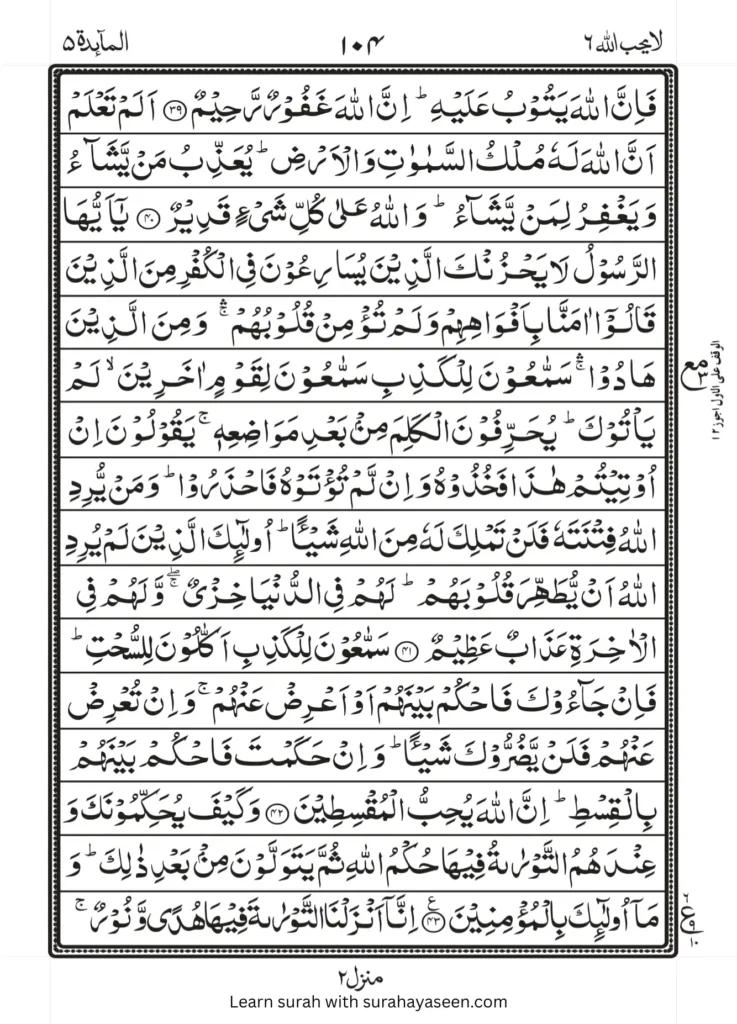 لا یحب الله ٦
١٠٤
المآىِٕدة ٥
فَاِنَّ اللّٰهَ یَتُوْبُ عَلَیْهِ ؕ اِنَّ اللّٰهَ غَفُوْرٌ رَّحِیْمٌ ﴿٣٩﴾ اَلَمْ تَعْلَمْ
اَنَّ اللّٰهَ لَهٗ مُلْكُ السَّمٰوٰتِ وَالْاَرْضِ ؕ یُعَذِّبُ مَنْ یَّشَآءُ
وَیَغْفِرُ لِمَنْ یَّشَآءُ ؕ وَاللّٰهُ عَلٰی كُلِّ شَیْءٍ قَدِیْرٌ ﴿٤٠﴾ یٰۤاَیُّهَا
الرَّسُوْلُ لَا یَحْزُنْكَ الَّذِیْنَ یُسَارِعُوْنَ فِی الْكُفْرِ مِنَ الَّذِیْنَ
قَالُوْۤا اٰمَنَّا بِاَفْوَاهِهِمْ وَلَمْ تُؤْمِنْ قُلُوْبُهُمْ ۛۚ وَمِنَ الَّذِیْنَ
هَادُوْا ۛۚ سَمّٰعُوْنَ لِلْكَذِبِ سَمّٰعُوْنَ لِقَوْمٍ اٰخَرِیْنَ ۙ لَمْ
یَاْتُوْكَ ؕ یُحَرِّفُوْنَ الْكَلِمَ مِنْۢ بَعْدِ مَوَاضِعِهٖ ۚ یَقُوْلُوْنَ اِنْ
اُوْتِیْتُمْ هٰذَا فَخُذُوْهُ وَاِنْ لَّمْ تُؤْتَوْهُ فَاحْذَرُوْا ؕ وَمَنْ یُّرِدِ
اللّٰهُ فِتْنَتَهٗ فَلَنْ تَمْلِكَ لَهٗ مِنَ اللّٰهِ شَیْـًٔا ؕ اُولٰٓىِٕكَ الَّذِیْنَ لَمْ یُرِدِ
اللّٰهُ اَنْ یُّطَهِّرَ قُلُوْبَهُمْ ؕ لَهُمْ فِی الدُّنْیَا خِزْیٌ ۖۚ وَّلَهُمْ فِی
الْاٰخِرَةِ عَذَابٌ عَظِیْمٌ ﴿٤١﴾ سَمّٰعُوْنَ لِلْكَذِبِ اَكّٰلُوْنَ لِلسُّحْتِ ؕ
فَاِنْ جَآءُوْكَ فَاحْكُمْ بَیْنَهُمْ اَوْ اَعْرِضْ عَنْهُمْ ۚ وَاِنْ تُعْرِضْ
عَنْهُمْ فَلَنْ یَّضُرُّوْكَ شَیْـًٔا ؕ وَاِنْ حَكَمْتَ فَاحْكُمْ بَیْنَهُمْ
بِالْقِسْطِ ؕ اِنَّ اللّٰهَ یُحِبُّ الْمُقْسِطِیْنَ ﴿٤٢﴾ وَكَیْفَ یُحَكِّمُوْنَكَ وَ
عِنْدَهُمُ التَّوْرٰىةُ فِیْهَا حُكْمُ اللّٰهِ ثُمَّ یَتَوَلَّوْنَ مِنْۢ بَعْدِ ذٰلِكَ ؕ وَ
مَاۤ اُولٰٓىِٕكَ بِالْمُؤْمِنِیْنَ ﴿٤٣﴾ ع اِنَّاۤ اَنْزَلْنَا التَّوْرٰىةَ فِیْهَا هُدًی وَّنُوْرٌ ۚ
مع ٣
الوقف علی الاول اجوز ١٢
ع
١٠
منزل ٢
Learn surah with surahayaseen.com